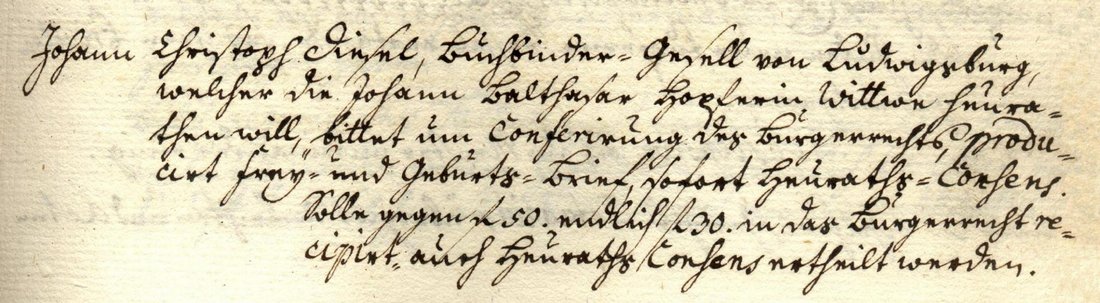 Johann Christoph Diesel, Buchbinder-Gesell von Ludwigsburg,
welcher die Johann Balthasar Hopferin Wittwe heura-
then will, bittet um Conferirung des Burgerrechts, produ-
cirt Frey- und Geburts-Brief, sofort Heuraths-Consens.
Solle gegen f 50. endlich f 30. in das Burgerrecht re-
cipirt, auch Heuraths Consens ertheilt werden.